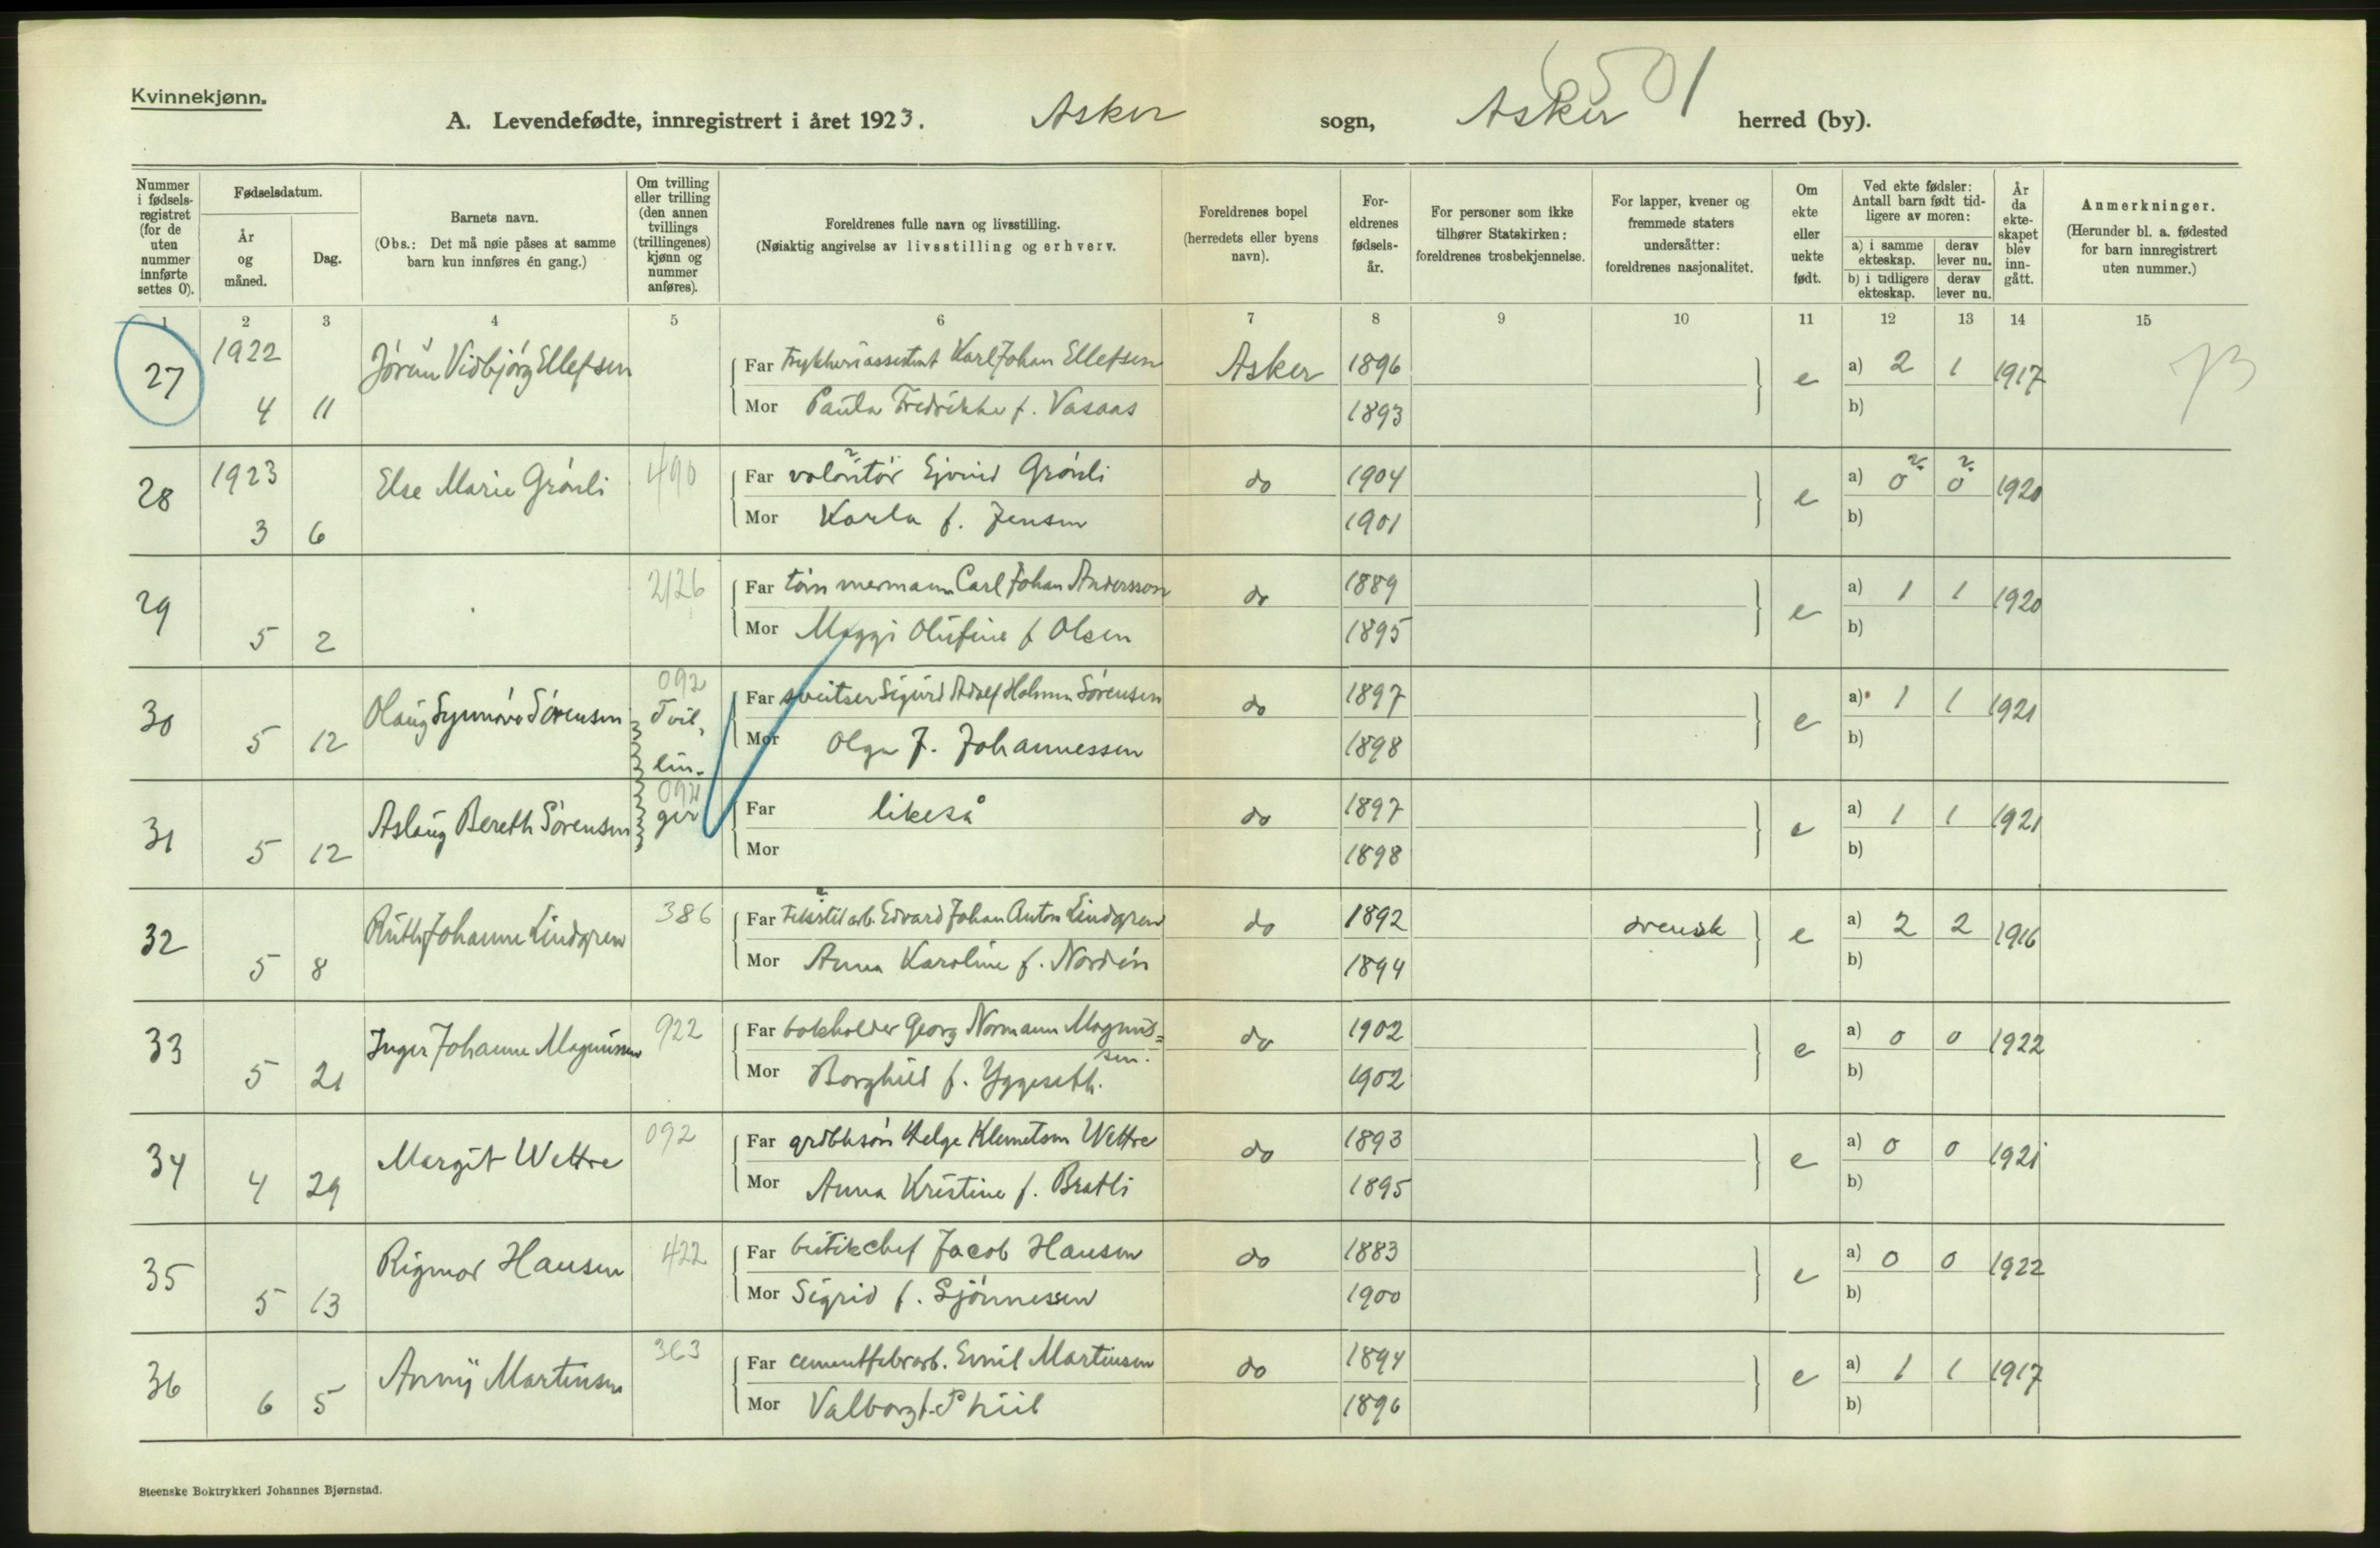 Kvinnekjønn.
6501
A. Levendefødte, innregistrert i året 1923. Asker sogn, Asker herred (by).
Nummer i fødselsregistret (for de uten nummer innførte settes 0).
Fødselsdatum.
År og måned.
Dag.
Barnets navn.
(Obs.: Det må nøie påses at samme barn kun innføres én gang.)
Om tvilling eller trilling (den annen tvillings (trillingenes) kjønn og nummer anføres).
Foreldrenes fulle navn og livsstilling.
(Nøiaktig angivelse av livsstilling og erhverv.
Foreldrenes bopel (herredets eller byens navn).
Foreldrenes fødselsår.
For personer som ikke tilhører Statskirken: foreldrenes trosbekjennelse.
For lapper, kvener og fremmede staters undersåtter: foreldrenes nasjonalitet.
Om ekte eller uekte født.
Ved ekte fødsler: Antall barn født tidligere av moren:
a) i samme ekteskap. derav lever nu.
b) i tidligere ekteskap. derav lever nu.
År da ekteskapet blev inngått.
Anmerkninger.
(Herunder bl. a. fødested for barn innregistrert uten nummer.)
1 2 3 4 5 6 7 8 9 10 11 12 13 14 15
27 1922 Jórun Vidbjórg Ellefsen Far trykkeriassistent Karl Johan Ellefsen Asker 1896 e a) 2 1 1917 73
4 11 Mor Paula Fredrikke f. Vasaas 1893 b)
28 1923 Else Marie Grónli 490 Far volontór Ejvind Grónli do 1904 e a) 0 0 1920
3 6 Mor Karla f. Jensen 1901 b)
29 2126 Far tómmermann Carl Johan Andersson do 1889 e a) 1 1 1920
5 2 Mor Maggi Olufine f Olsen 1895 b)
30 Olaug Synnóve Sórensen 092 Tvil- Far sveitser Sigurd Adolf Holmen Sórensen do 1897 e a) 1 1 1921
5 12 lin- Mor Olga f. Johannessen 1898 b)
31 Aslaug Bereth Sórensen 092 ger Far likeså do 1897 e a) 1 1 1921
5 12 Mor 1898 b)
32 Ruth Johanne Lindgren 386 Far tekstilarb. Edvard Johan Anton Lindgren do 1892 svensk e a) 2 2 1916
5 8 Mor Anna Karoline f. Nordén 1894 b)
33 Inger Johanne Magnussen 922 Far bokholder Georg Normann Magnus=
sen. do 1902 e a) 0 0 1922
5 21 Mor Borghild f. Yggeseth. 1902 b)
34 Margit Wettre 092 Far grdbrsón Helge Klemetsen Wettre do 1893 e a) 0 0 1921
4 29 Mor Anna Kristine f. Bratli 1895 b)
35 Rigmor Hansen 422 Far butikchef Jacob Hansen do 1883 e a) 0 0 1922
5 13 Mor Sigrid f. Sjónnessen 1900 b)
36 Anny Martinsen 363 Far cementfabrarb. Emil Martinsen do 1894 e a) 1 1 1917
6 5 Mor Valborg f. 1896 b)
Steenske Boktrykkeri Johannes Bjørnstad.